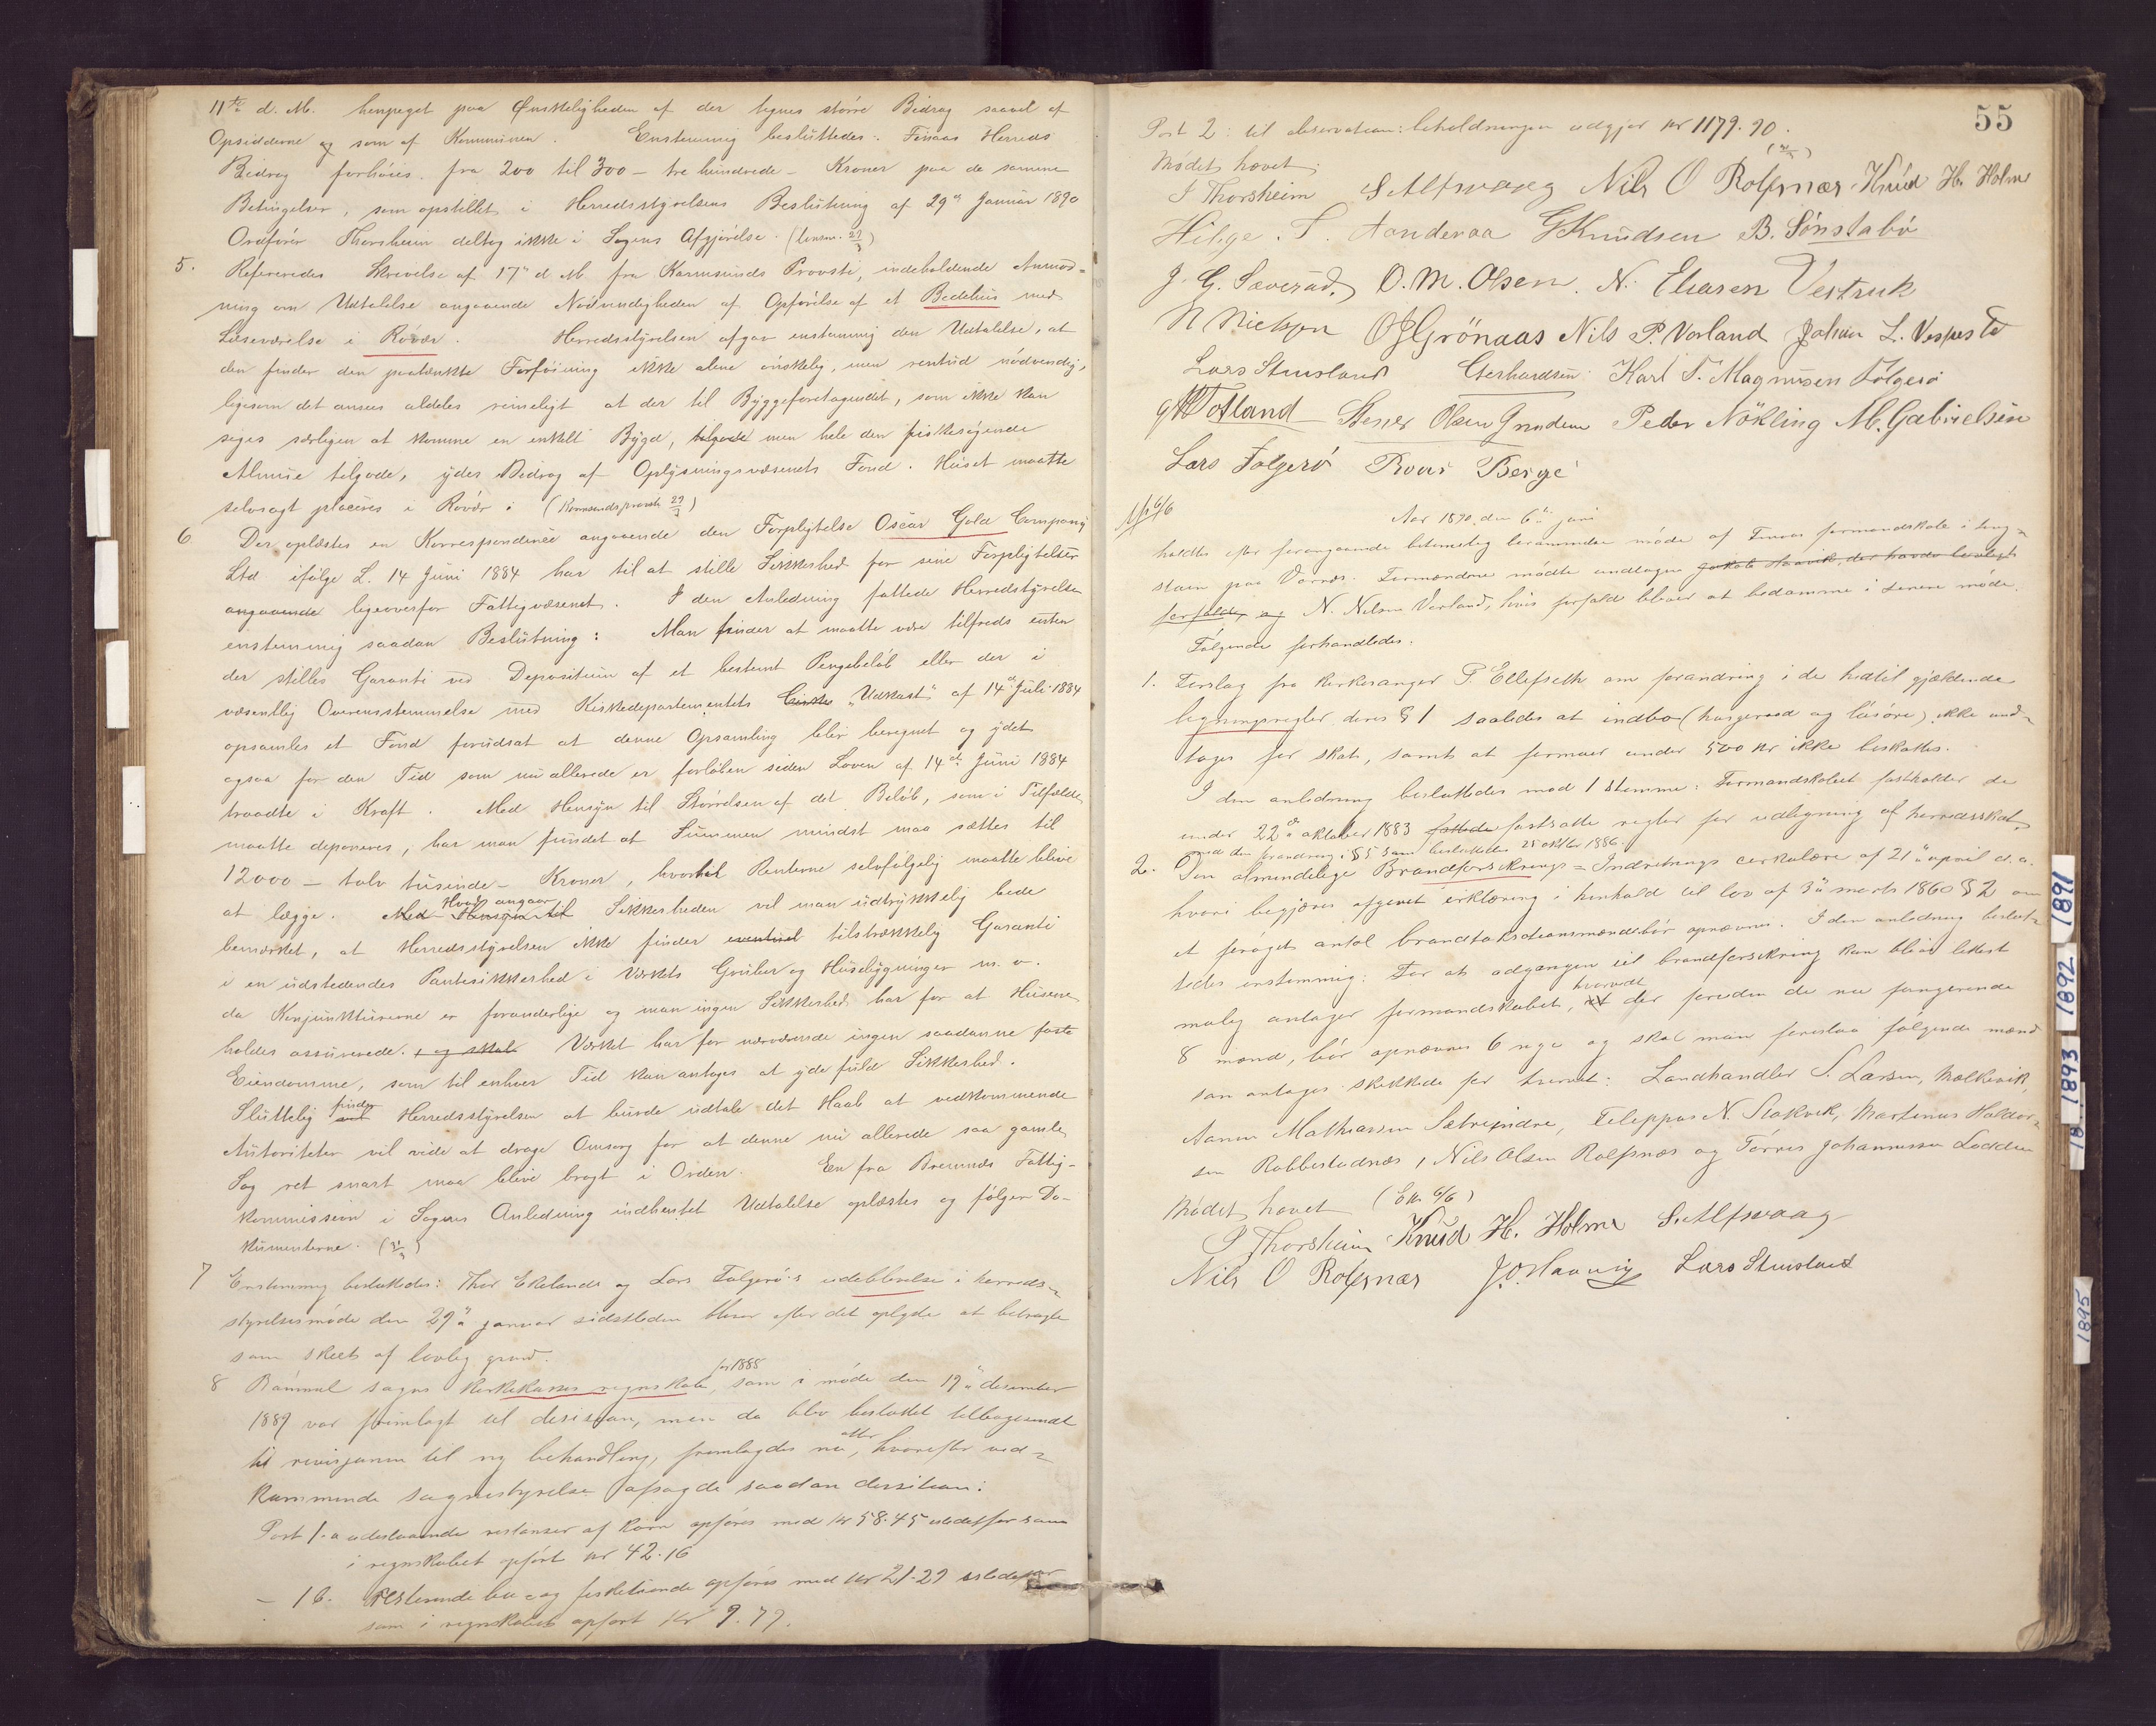 11te d. M. henpeget paa Ønskeligheden af der tegnes större Bidrag saavel af
Opsidderne og som af Kommunen. Enstemmig besluttedes: Finaas Herreds
Bidrag forhöies fra 200 til 300 – tre hundrede – Kroner paa de samme
Betingelser, som opstillet i Herredsstyrelsens Beslutning af 29de Januar 1890
Ordförer Thorsheim deltog ikke i Sagens Afgjörelse. (29/3)
5. Refereredes Skrivelse af 17de d. M. fra Karmsunds Provsti, indeholdende Anmod=
ning om Udtalelse angaaende Nödvendigheden af Opförelse af et Bedehus med
Læseværelse i Rövær. Herredsstyrelsen afgav enstemmig den Udtalelse, at
den finder den paatænkte Forföining ikke alene önskelig, men rentud nödvendig,
ligesom det ansees aldeles rimeligt at der til Byggeforetagendet, som ikke kan
siges særligen at komme en enkelt Bygd, tilgode men hele den fiskesögende
Almue tilgode, ydes Bidrag af Oplysningsvæsenets Fond. Huset maatte
selvsagt placeres i Rövær. (Karmsunds provsti 29/3)
6. Der oplæstes en Korrespondence angaaende den Forpligtelse Oscar Gold Company
Ltd ifölge L. 14 Juni 1884 har til at stille Sikkerhed for sine Forpligtelser
angaaende ligeoverfor Fattigvæsenet. I den Anledning fattede Herredsstyrelsen
enstemmig saadan Beslutning: Man finder at maatte være tilfreds enten
der stilles Garanti ved Depositum af et bestemt Pengebelöb eller der i
væsentlig Overensstemmelse med Kirkedepartementets "Udkast" af 14de Juli 1884
opsamles et Fond forudsat at denne Opsamling blir beregnet og ydet
ogsaa for den Tid som nu allerede er forlöben siden Loven af 14de Juni 1884
traadte i Kraft. Med Hensyn til Störrelsen af det Belöb, som i Tilfælde
maatte deponeres, har man fundet at Summen mindst maa sættes til
12000 – tolv tusinde – Kroner, hvortil Renterne selvfölgelig maatte blive
at lægge. Med Hensyn til Hvad angaar Sikkerheden vil man udtrykkelig bede
bemærket, at Herredsstyrelsen ikke finder eventuel tilstrækkelig Garanti
i en udstedendes Pantesikkerhed i Værkets Gruber og Husebygninger m. v.
da Konjunkturerne er foranderlige og man ingen Sikkerhed har for at Husene
holdes assurerede. , og skal Værket har for nærværende ingen saadanne faste
Eiendomme, som til enhver Tid kan antages at yde fuld Sikkerhed.
Sluttelig finder Herredsstyrelsen at burde udtale det Haab at vedkommende
Autoriteter vil vide at drage Omsorg for at denne nu allerede saa gamle
Sag ret snart maa blive bragt i Orden. En fra Bremnæs Fattig-
kommission i Sagens Anledning indhentet Udtalelse oplæstes og fölger Do-
kumenterne.
7 Enstemmig besluttedes: Thor Ekelands og Lars Folgerö's udeblivelse i herreds-
styrelsesmöde den 29de januar sidstleden bliver efter det oplyste at betragte
som skeet af lovlig grund.
8 Bömmel sogns kirkekasses regnskab for 1888, som i möde den 19de desember
1889 var fremlagt til desision, men da blev besluttet tilbagesendt
til revisjonen til ny behandling, fremlagdes nu atter, hvorefter ved-
kommende sognestyrelse afsagde saadan desision:
Post 1.a udestaaende restanser af korn opföres med kr 58.45 istedetfor som
i regnskabet opfört kr 42.16
– 1 b. Resterende ku- og fisketiende opföres med kr 21.29 istedetfor
som i regnskabet opfört kr 9.79.
55
Post 2: til observation: beholdningen udgjör kr 1179.90.
Mödet hævet.
P Thorsheim S Alfsvaag Nils O Rolfsnæs Knud H. Holme
Helge. T. Aanderaa G Knudsen B. Sönstabö
J. G. Sæverud. O. M. Olsen. N. Eliasen Vestvik
N Nielsen O J Grönaas Nils P. Vorland Johan L. Vespestø
Lars Stuvland Gerhardsen Karl T. Magnusen Folgerö
Totland Stener Olsen Grinden Peder Nökling M. Gabrielsen
Lars Folgerö Roar Berge
6/6
Aar 1890 den 6te juni
holdtes efter forangaaende betimelig berammelse möde af Finnas formandskab i ting-
stuen paa Vornes. Formændene mödte undtagen Jakob Haavik, der havde lovligt
forfald, og N. Nilsen Vorland, hvis forfald bliver at bedömme i senere möde.
Fölgende forhandledes.
1. Forslag fra kirkesanger P Ellefseth om forandring i de hidtil gjældende
ligningsregler deres § 1 saaledes at indbo (husgeraad og lösöre) ikke med-
tages for skat, samt at formuer under 500 kr ikke beskattes.
I den anledning besluttedes mod 1 stemme: Formandskabet fastholder de
under 22de oktober 1883 fattede fastsatte regler for udligning af herredsskat
med den forandring i § 5 som besluttedes 25 oktbr 1886.
2. Den almindelige Brandforsikrings-Indretnings cirkulære af 21de april d. a.
hvori begjæres afgivet erklæring i henhold til lov af 3de marts 1860 § 2 om
et foröget antal brandtakstionsmænd bör opnævnes. I den anledning beslut-
tedes enstemmig: For at adgangen til brandforsikring kan blive lettest
mulig antager formandskabet, at der foruden de nu fungerende
8 mænd, bör opnævnes 6 nye og skal man foreslaa fölgende mænd
som antages skikkede for hvervet: Landhandler S. Larsen, Mælkevik,
Aamund Mathiassen Sætreindre, Fileppus N. Stokvik, Martinus Haldor-
sen Robbestadnæs, Nils Olsen Rolfsnæs og Torres Johannessen Lodden
Mödet hævet (6/6)
P Thorsheim Knud H. Holme S. Alfsvaag
Nils O Rolfsnæs J. O. Haavig Lars Stuvland
1891
1892
1893
1895